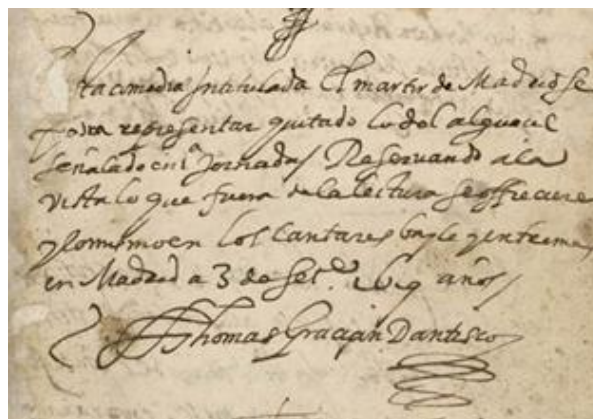 Esta comedia Intitulada El martir de Madrid se
podra representar quitado lo del alguacil
señalado en 1ª Jornada / Reservando a la
vista lo que fuera de la lectura se offreciere
y lo mismo en los Cantares bayle y entremes
en Madrid a 3 de Set.e 1619 años /
Thomas Gracian Dantisco